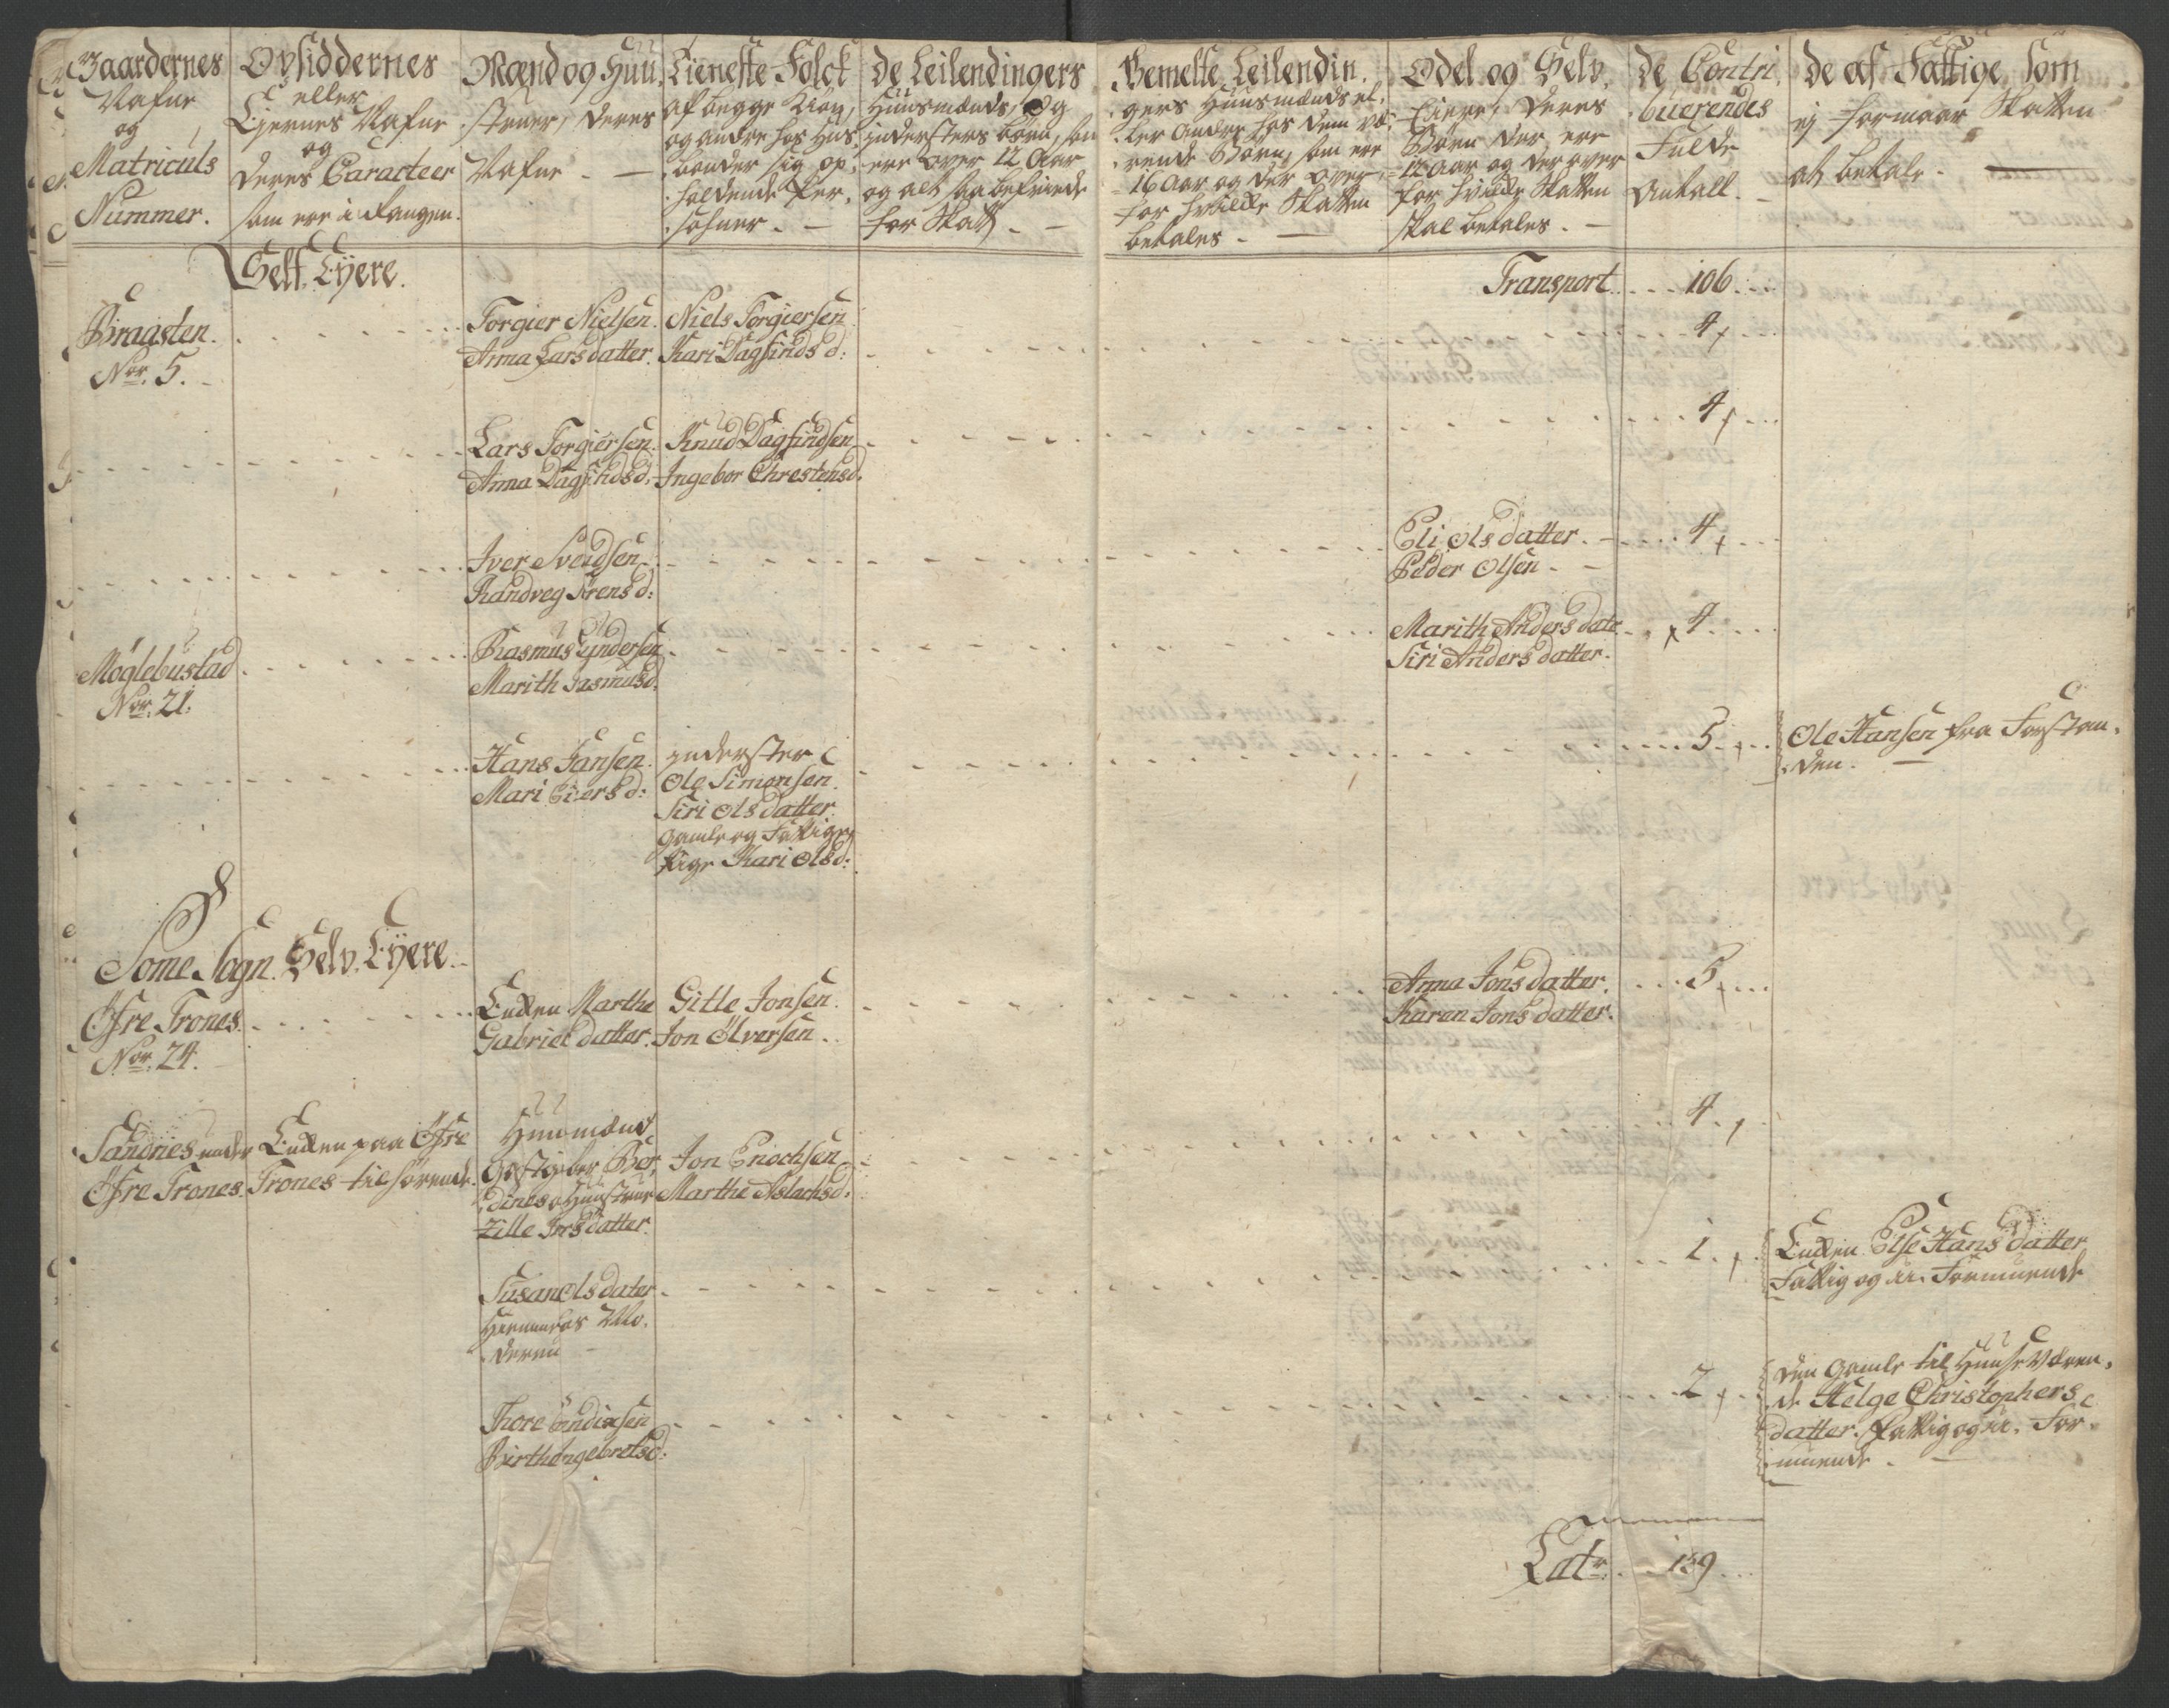 Gaardernes
Nafne
og
Matriculs
Nummer.
Opsiddernes
eller
Ejernes Nafne
og
deres Caracteer
som ere i Rangen.
Mænd og Huu
struer, deres
Nafne. —
Tieneste Folck
af begge Kiøn,
og andre hos Huus
bonder sig op
holdende Per
sohner. —
de Leilendingers
Huusmænds, og
indersters børn, som
ere over 12 Aar
og alt saa befriede
for Skatt. —
Bemelte Leilendin
gers Huusmænds el
ler andre hos dem væ
rende Børn, som ere
16 Aar og der over,
for hvilke Skatten
betales. —
Odel og Selv
Eiere, deres
Børn der ere
12 Aar og der over
for hvilke Skatten
skal betales. —
de Contri
buerendes
Fulde
Antall. —
de af Fattige som
ej formaar Skatten
at betale. —
Self Eÿere.
Transport . . . 106 . . .
Braasten.
Nor. 5.
Torgier Nielsen.
Anna Lars datter.
Niels Torgiersen
Kari Dagfinds d:
4
Lars Torgiersen.
Anna Dagfinds d:
Knud Dagfindsen
Ingebor Chrestensd.
4
Iver Svendsen
Randveg Sörens d:
Eli Ols datter. —
Peder Olsen - -
4
Möglebustad
Nor. 21.
Rasmus Syndersen
Marith Rasmusd:
Marith Anders date
Siri Anders datter.
4
Hans Jansen.
Mari Eiersd:
inderster
Ole Simonsen.
Siri Ols datter.
gamle og Fattige
Pige Kari Olsd:
5
Ole Hansen fra Forstan
den. —
Some Sogn. Selv. Eÿere.
Öfre Trones.
Nor. 24.
Enken Marthe
Gabriel datter.
Gitle Jonsen.
Jon Olversen.
Anna Jons datter.
Karen Jons datter.
5
Sandnes under
Öfre Trones.
Enken paa Öfre
Trones tilhørende.
Huusmænd
Gestgeber Ber
dines Huustrue
Zille Jors datter.
Jon Enochsen
Marthe Aslachsd:
4
Susan Ols dater.
Hermeds Mo
deren -
1
Enken Else Hans datter
Fattig og U. Formuende
Thore Endresen
Birthe Ingebretsd:
2
den gamle til Huuse være
de Helge Christophers
datter. Fattig og U. For
muende. —
Latr. . . 139 . . .